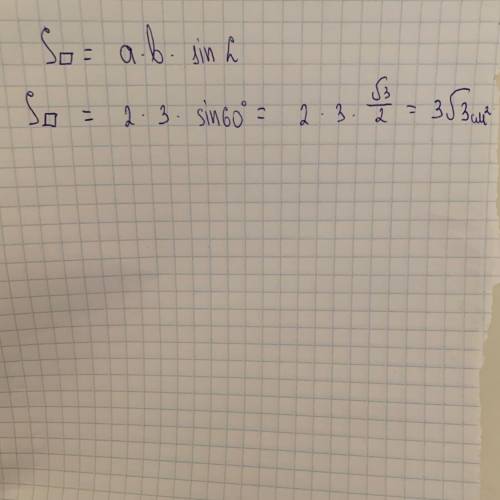 S□ = a·b· sin L
S□ = 2·3· sin60° = 2·3· √3/2 = 3√3 см²